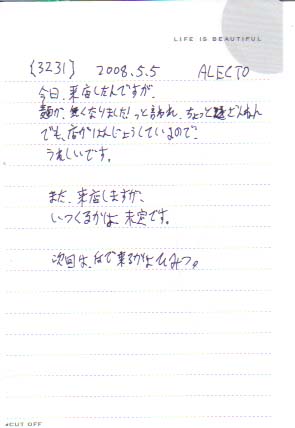 LIFE IS BEAUTIFUL
{3231} 2008.5.5 ALECTO
今日、来店したんですが、
麺が、無くなりました!っと言われ、ちょっとざんねん
でも、店がはんじょうしているので、
うれしいです。
また、来店しますが、
いつくるかは、未定です。
次回は、なで来るかはひみつ。
◂CUT OFF